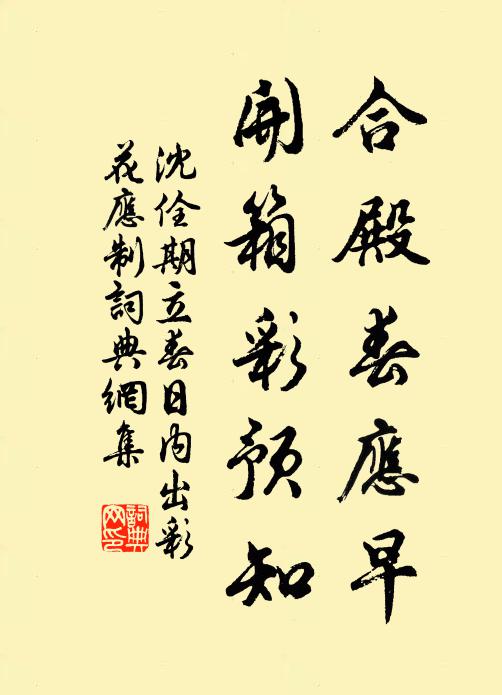 合殿春應早
開箱彩預知
沈佺期立春日内出彩
花應制詞典網集
詞典网印